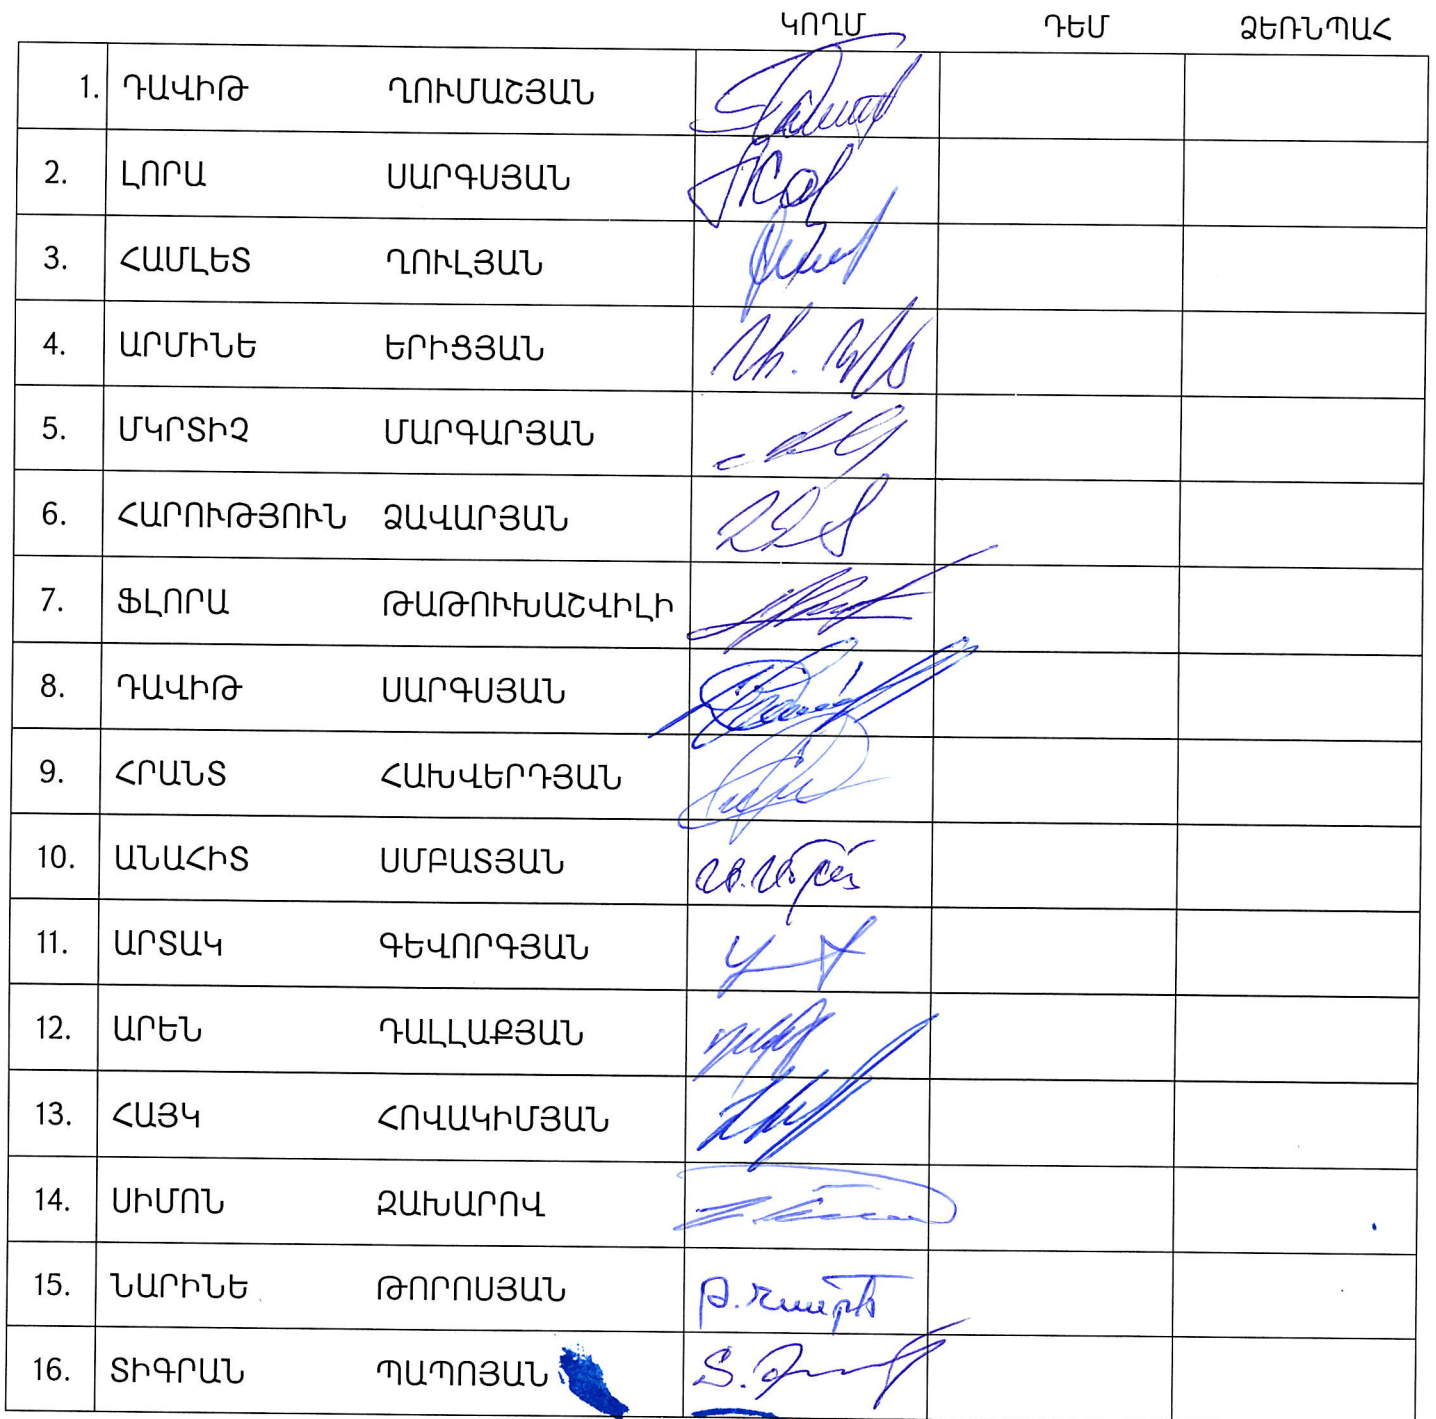 ԿՈՂՄ ԴԵՄ ՁԵՌՆՊԱՀ
1. ԴԱՎԻԹ ՂՈՒՄԱՇՅԱՆ
2. ԼՈՐԱ ՍԱՐԳՍՅԱՆ
3. ՀԱՄԼԵՏ ՂՈՒԼՅԱՆ
4. ԱՐՄԻՆԵ ԵՐԻՑՅԱՆ
5. ՄԿՐՏԻՉ ՄԱՐԳԱՐՅԱՆ
6. ՀԱՐՈՒԹՅՈՒՆ ՁԱՎԱՐՅԱՆ
7. ՖԼՈՐԱ ԹԱԹՈՒԽԱՇՎԻԼԻ
8. ԴԱՎԻԹ ՍԱՐԳՍՅԱՆ
9. ՀՐԱՆՏ ՀԱԽՎԵՐԴՅԱՆ
10. ԱՆԱՀԻՏ ՍՄԲԱՏՅԱՆ
11. ԱՐՏԱԿ ԳԵՎՈՐԳՅԱՆ
12. ԱՐԵՆ ԴԱԼԼԱՔՅԱՆ
13. ՀԱՅԿ ՀՈՎԱԿԻՄՅԱՆ
14. ՍԻՄՈՆ ԶԱԽԱՐՈՎ
15. ՆԱՐԻՆԵ ԹՈՐՈՍՅԱՆ
16. ՏԻԳՐԱՆ ՊԱՊՈՅԱՆ